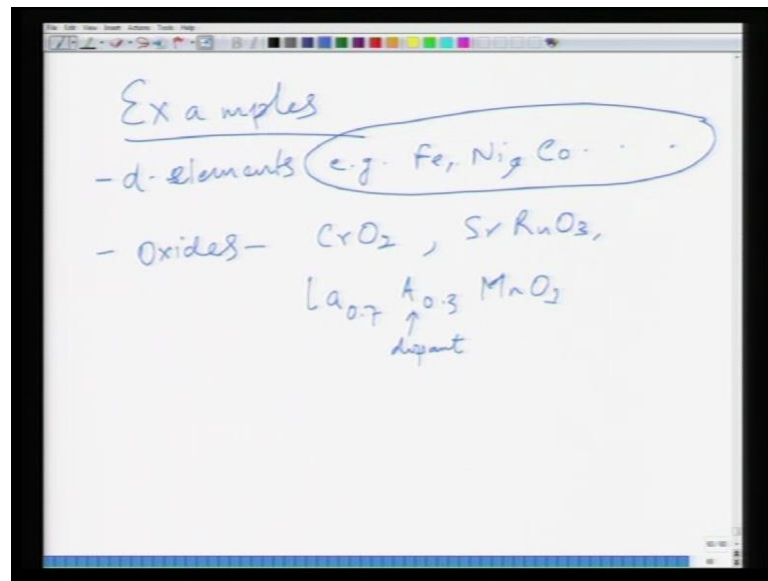 File Edit View Insert Actions Tools Help
Examples
- d-elements e.g. Fe, Ni, Co . . .
- Oxides - CrO2, SrRuO3,
La0.7 A0.3 MnO3
↑
dopant